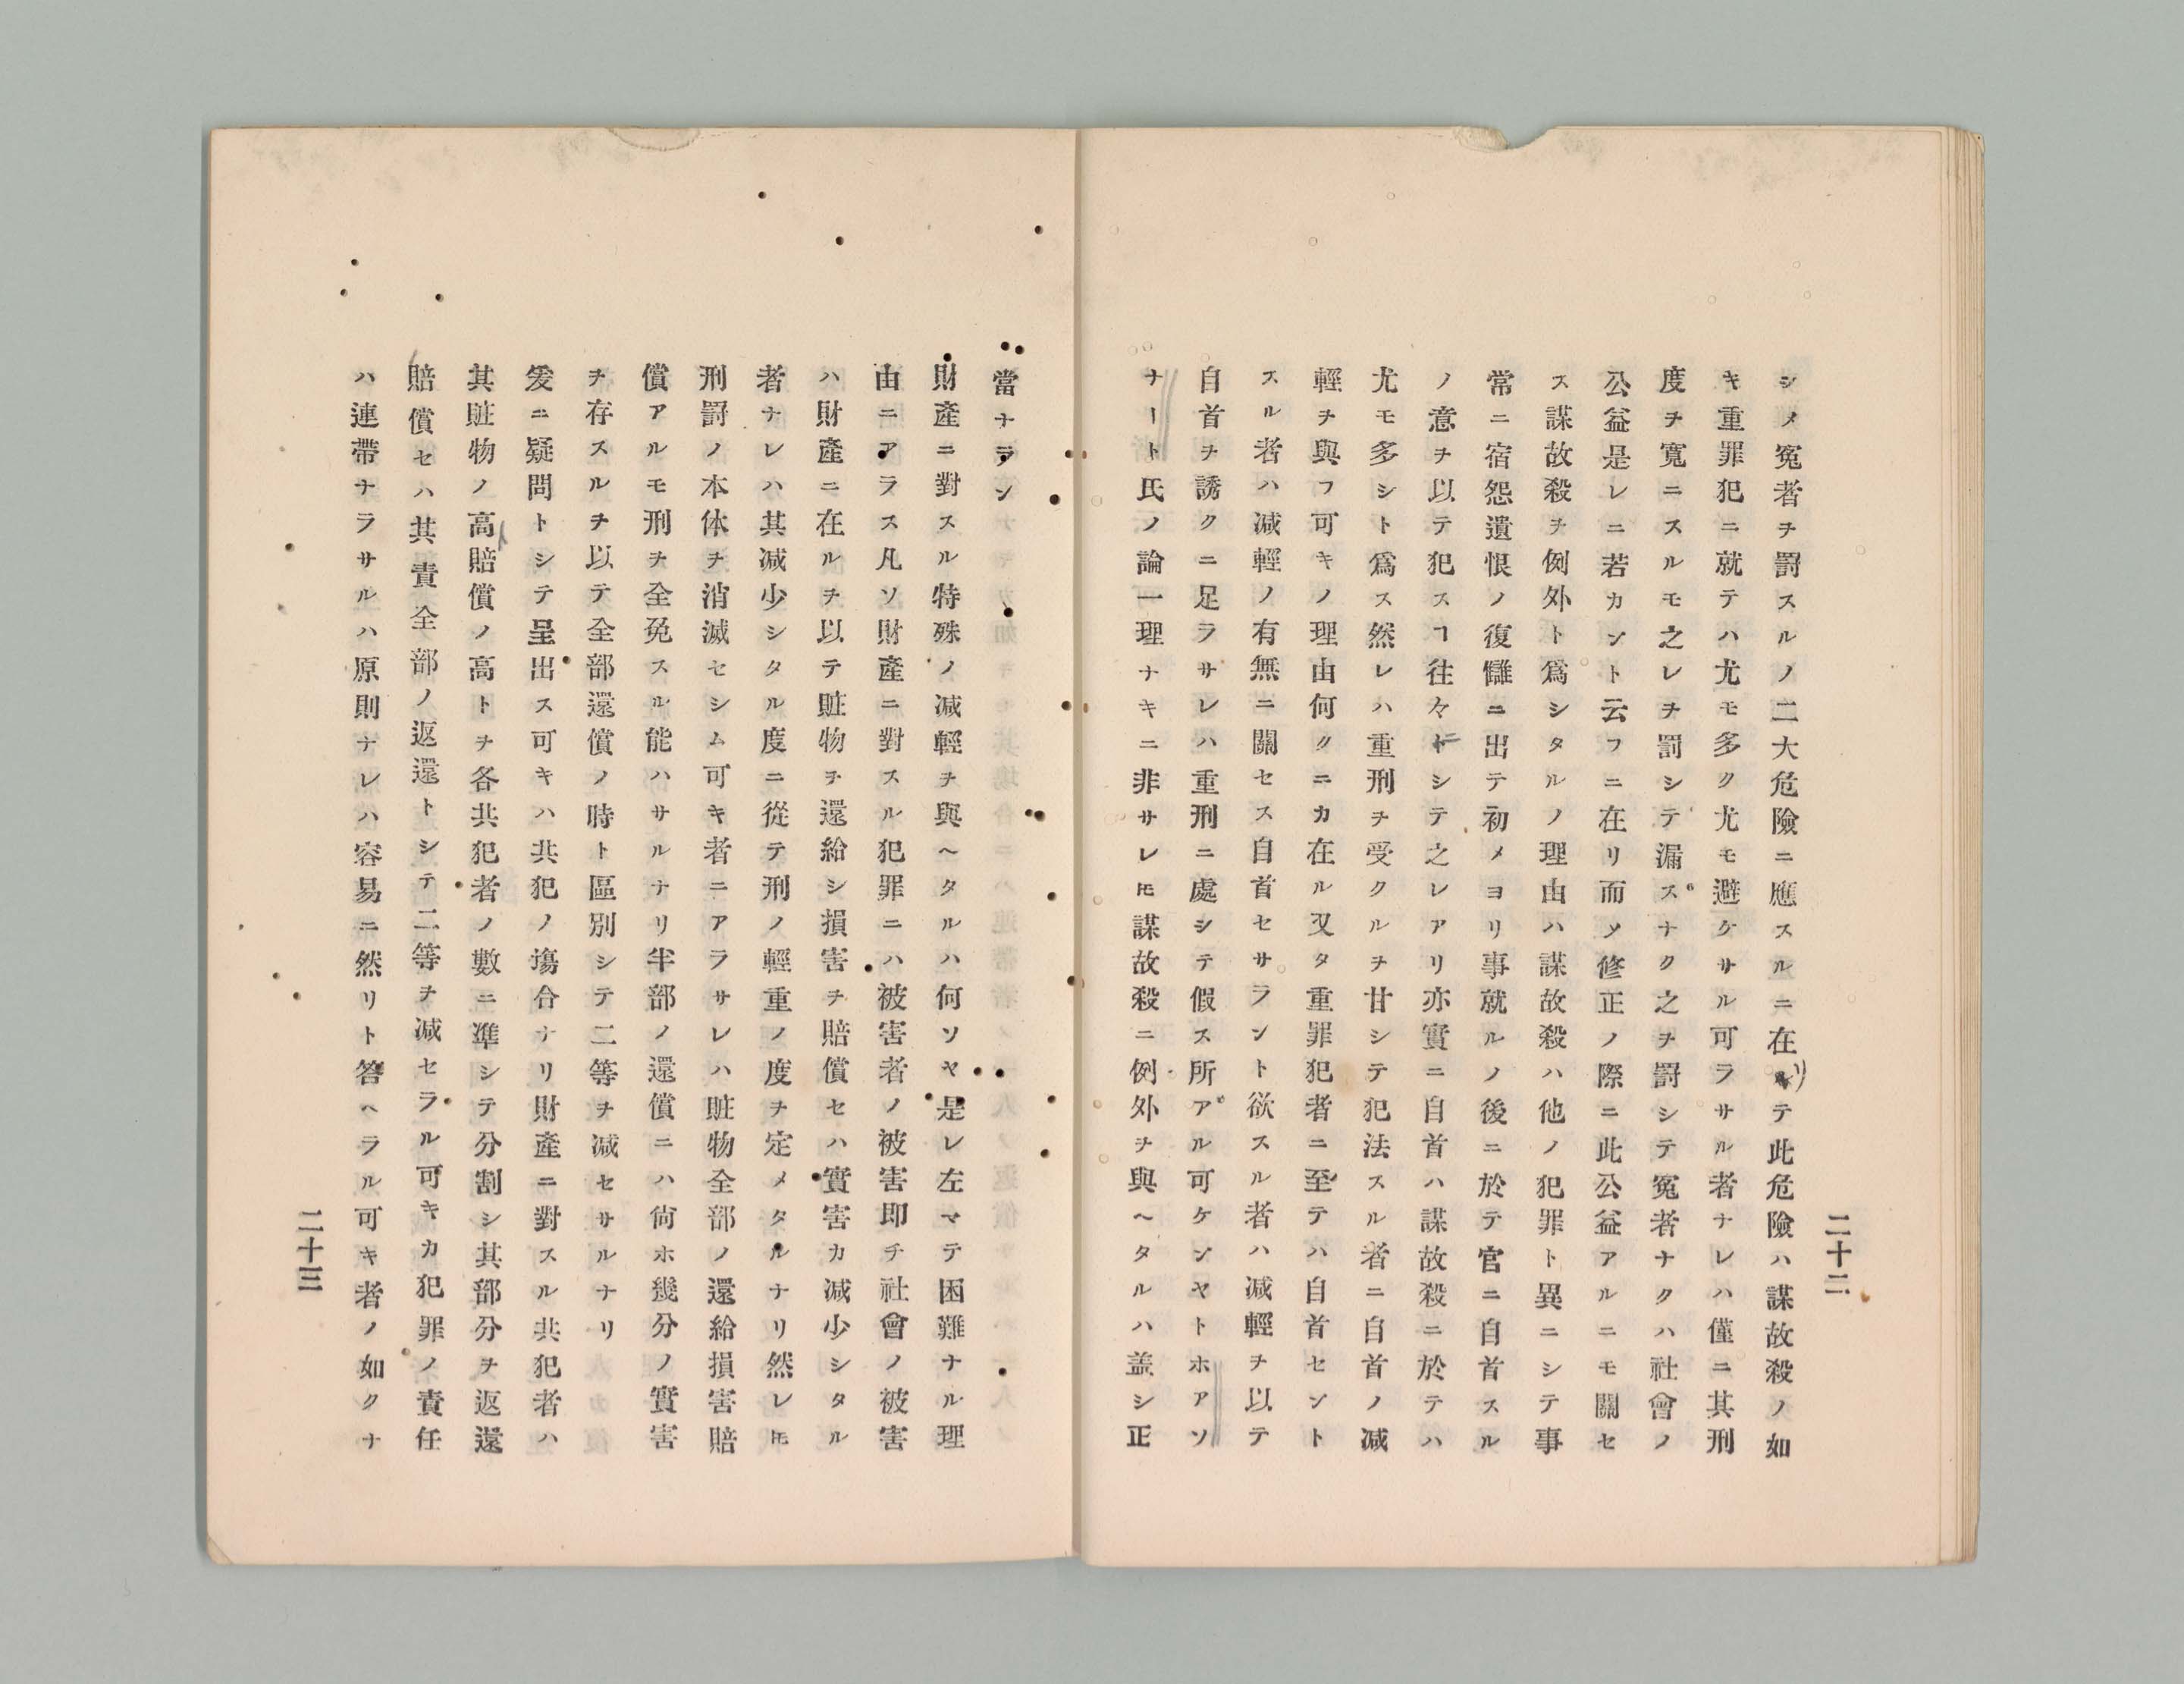 シメ冤者ヲ罰スルノ二大危險ニ應スルニ在リテ此危險ハ謀故殺ノ如
キ重罪犯ニ就テハ尤モ多ク尤モ避ケサル可ラサル者ナレハ僅ニ其刑
度ヲ寬ニスルモ之レヲ罰シテ漏スナク之ヲ罰シテ冤者ナクハ社會ノ
公益是レニ若カント云フニ在リ而ソ修正ノ際ニ此公益アルニモ關セ
ス謀故殺ヲ例外ト爲シタルノ理由ハ謀故殺ハ他ノ犯罪ト異ニシテ事
常ニ宿怨遺恨ノ復讎ニ出テ初メヨリ事就ルノ後ニ於テ官ニ自首スル
ノ意ヲ以テ犯スヿ往々ニシテ之レアリ亦實ニ自首ハ謀故殺ニ於テハ
尤モ多シト爲ス然レハ重刑ヲ受クルヲ甘シテ犯法スル者ニ自首ノ减
輕ヲ與フ可キノ理由何クニカ在ル又タ重罪犯者ニ至テハ自首セント
スル者ハ减輕ノ有無ニ關セス自首セサラント欲スル者ハ减輕ヲ以テ
自首ヲ誘クニ足ラサレハ重刑ニ處シテ假ス所アル可ケンヤトホアソ
ナート氏ノ論一理ナキニ非サレ𪜈謀故殺ニ例外ヲ與ヘタルハ盖シ正
二十二
當ナラン
財產ニ對スル特殊ノ减輕ヲ與ヘタルハ何ソヤ是レ左マテ困難ナル理
由ニアラス凡ソ財產ニ對スル犯罪ニハ被害者ノ被害即チ社會ノ被害
ハ財產ニ在ルヲ以テ賍物ヲ還給シ損害ヲ賠償セハ實害カ减少シタル
者ナレハ其减少シタル度ニ從テ刑ノ輕重ノ度ヲ定メタルナリ然レ𪜈
刑罰ノ本体ヲ消滅セシム可キ者ニアラサレハ賍物全部ノ還給損害賠
償アルモ刑ヲ全免スル能ハサルナリ半部ノ還償ニハ尙ホ幾分ノ實害
ヲ存スルヲ以テ全部還償ノ時ト區別シテ二等ヲ减セサルナリ
爰ニ疑問トシテ呈出ス可キハ共犯ノ塲合ナリ財產ニ對スル共犯者ハ
其賍物ノ高賠償ノ高トヲ各共犯者ノ數ニ準シテ分割シ其部分ヲ返還
賠償セハ其責全部ノ返還トシテ二等ヲ减セラル可キカ犯罪ノ責任
ハ連帶ナラサルハ原則ナレハ容易ニ然リト答ヘラル可キ者ノ如クナ
二十三